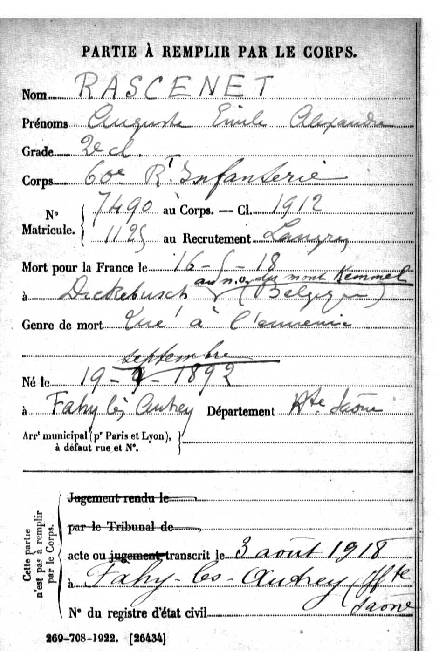 PARTIE À REMPLIR PAR LE CORPS.
Nom RASCENET
Prénoms Auguste Emile Alexandre
Grade 2e cl.
Corps 60e Rt Infanterie
N° Matricule. { 7490 au Corps. — Cl. 1912
1125 au Recrutement Langres
Mort pour la France le 16-5-18
au n.o. du mont Kemmel
à Dickebusch (Belgique)
Genre de mort Tué à l'ennemi
septembre
Né le 19-9-1892
à Fahy lès Autrey Département Hte Saône
Arrt municipal (pr Paris et Lyon), à défaut rue et N°. }
Cette partie n'est pas à remplir par le Corps. {
Jugement rendu le
par le Tribunal de
acte ou jugement transcrit le 3 août 1918
à Fahy-les-Autrey (Hte
Saône
N° du registre d'état civil
269-708-1922. [26434]